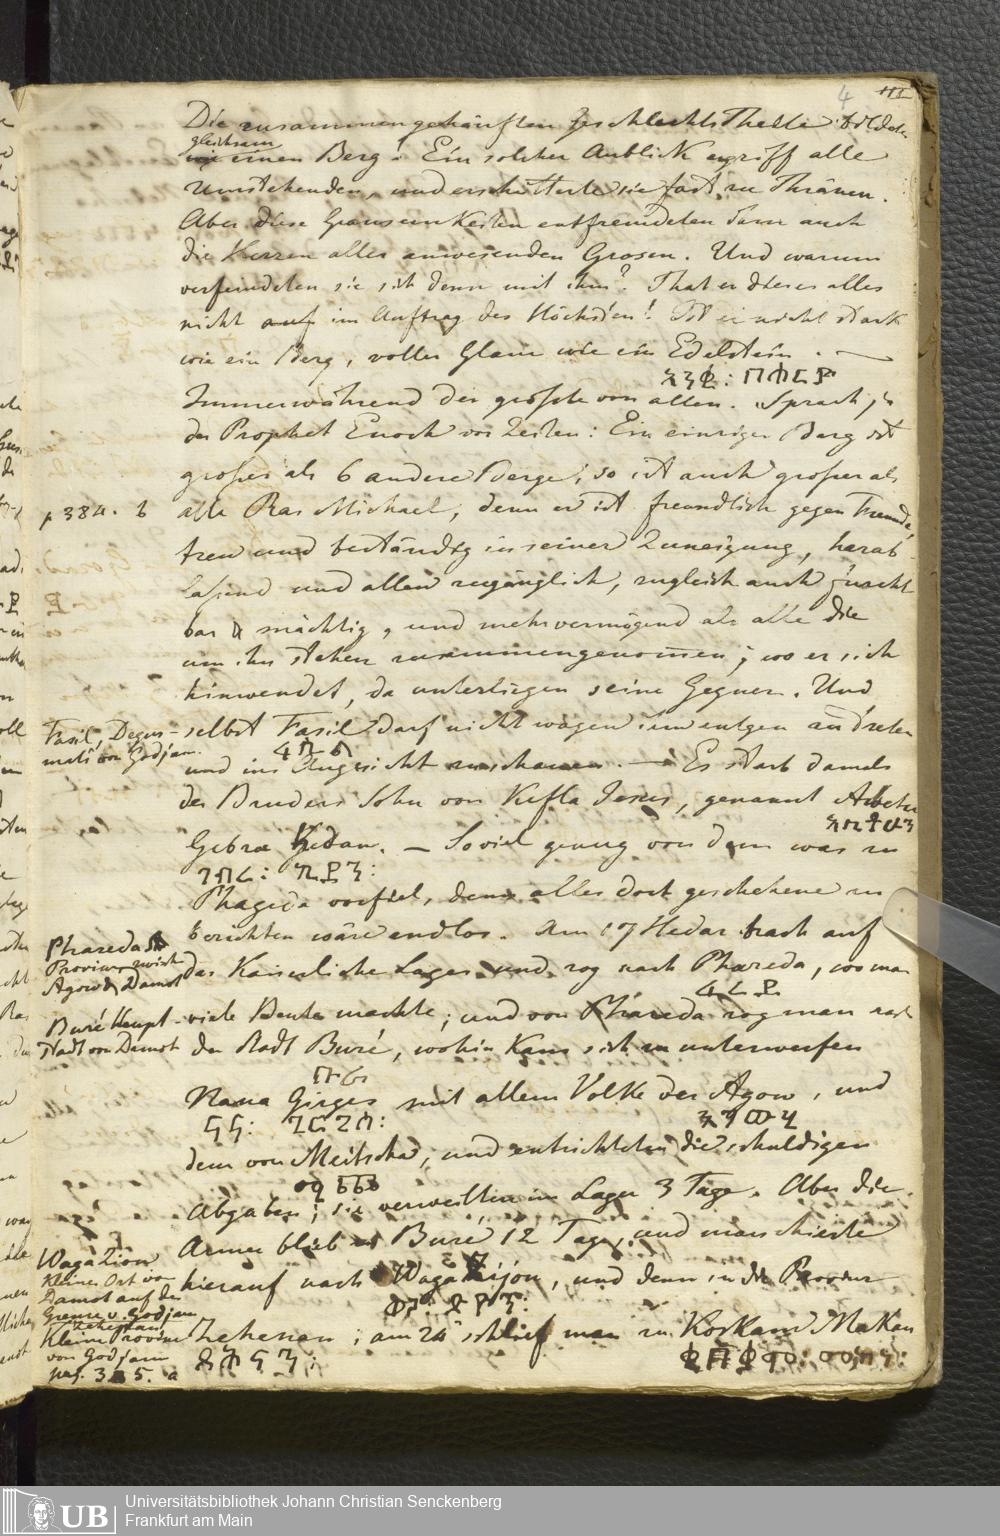 4 III
Die zusammengehäuften Geschlechts Theile bildeten
gleichsam
einen Berg. Ein solcher Anblick ergriff alle
Umstehenden, und erschütterte sie fast zu Thränen.
Aber diese Grausamkeiten entfremdeten ihm auch
die Herzen aller anwesenden Grosen. Und warum
verfeindeten sie sich denn mit ihm? That er dieses alles
nicht auf im Auftrag des Höchsten! Ist er nicht stark
wie ein Berg, voller Glanz wie ein Edelstein. —
Immerwährend der größte von allen. Sprach ja
der Prophet Enoch vor Zeiten: Ein einziger Berg ist
großer als 6 andere Berge; so ist auch großer als
p 384. b
alle Ras Michael, denn er ist freundlich gegen Freunde,
treu und beständig in seiner Zuneigung, herab-
laßend und allen zugänglich, zugleich auch furcht
bar mächtig, und mehr vermögend als alle die
um ihn stehen zusammengenommen; wo er sich
hinwendet, da unterliegen seine Gegner. Und
Fasil, Degus-
mati von Godjam.
selbst Fasil darf nicht wagen ihm entgegen zu treten
ፋሲል
und ins Angesicht zu schauen. — Es starb damals
des Bruders Sohn von Kefla Jesus, genannt
Gebra Kidan. — Soviel genug von dem was zu
ገብረ፡ ኪዳን፡
Phageda vorfiel, denn alles dort geschehene zu
berichten wäre endlos. Am 17 Hedar brach auf
Phareda
Provinz zwisch
Agow & Damot
das Kaiserliche Lager und zog nach Phareda, wo man
ፋረዳ
Buré Haupt-
stadt von Damot
viele Beute machte; und von Phareda zog man nach
der Stadt Buré, wohin kam sich zu unterwerfen
ቡሬ
Nana Girges mit allem Volke der Agow, und
ናና፡ ጊርጊስ፡ አገው
dem von Meitscha, und entrichteten die schuldigen
Abgaben; sie verweilten im Lager 3 Tage. Aber die
Armee blieb in Buré 12 Tage, und marschierte
Wagazion
kleiner Ort von
Damot auf der
Grenze v. Godjam
Zehenan
kleine Provinz
von Godjam
pag. 385. a
hierauf nach Wagazijon, und dann in die Provinz
Zehenan; am 24 schlief man zu Koskam Makan